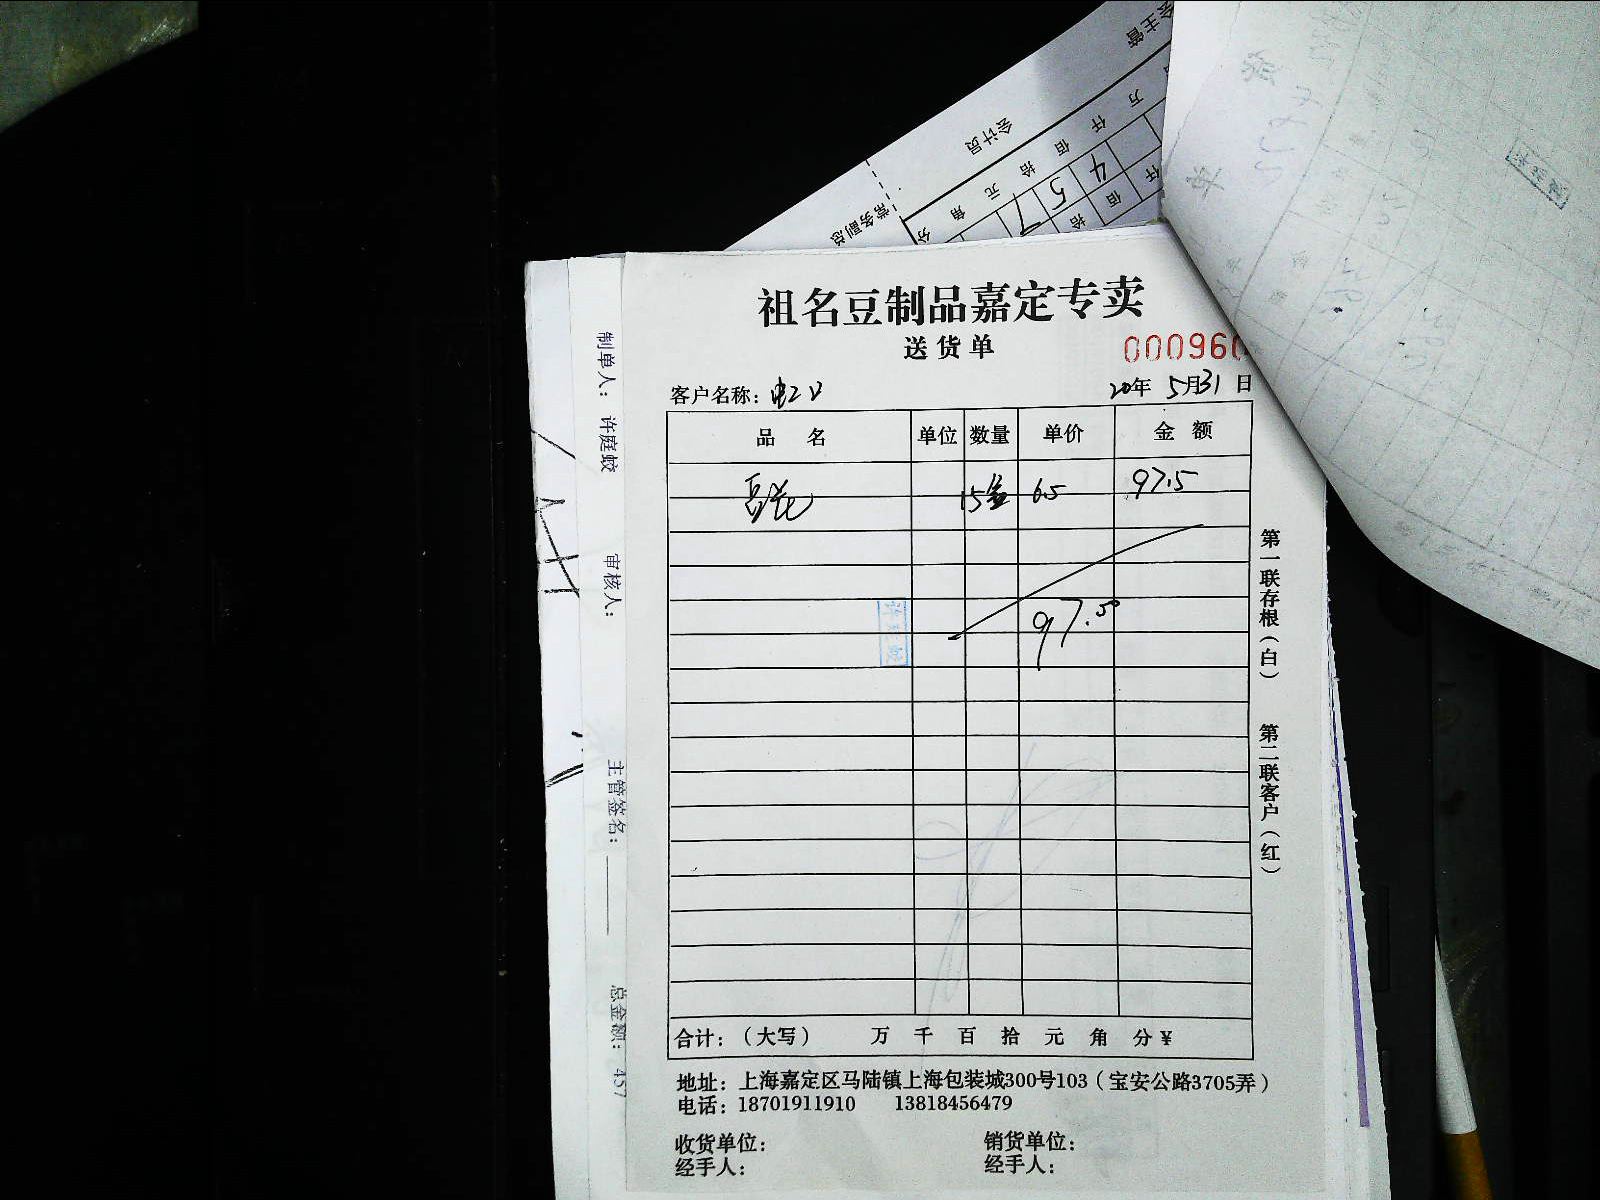 会主管
会计员
万 仟 佰 拾 元 角 分
4 5 7
仟 佰 拾
常务副总
祖名豆制品嘉定专卖
送货单
000960
客户名称：
20年 5月31日
品名 单位 数量 单价 金额
豆花 15盒 6.5 97.5
97.50
许庭蛟
合计：（大写） 万 千 百 拾 元 角 分 ¥
地址：上海嘉定区马陆镇上海包装城300号103（宝安公路3705弄）
电话：18701911910 13818456479
收货单位： 销货单位：
经手人： 经手人：
第一联存根（白） 第二联客户（红）
制单人：许庭蛟 审核人： 主管签名： 总金额：457